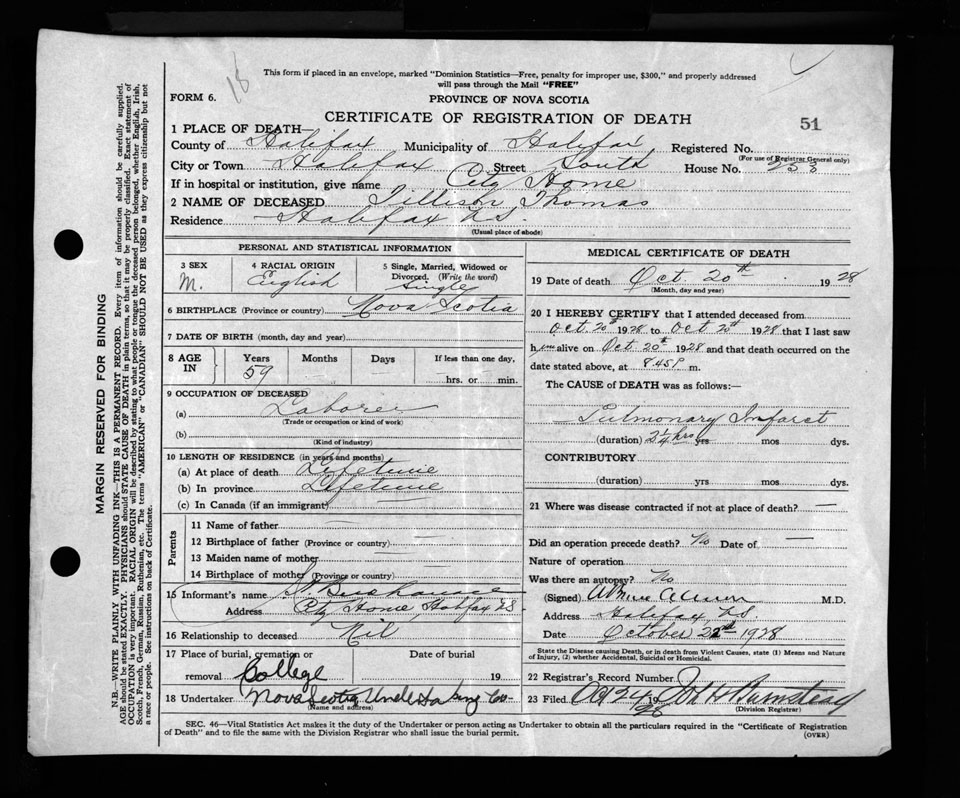 18
This form if placed in an envelope, marked "Dominion Statistics—Free, penalty for improper use, $300," and properly addressed
will pass through the Mail "FREE"
FORM 6.
PROVINCE OF NOVA SCOTIA
CERTIFICATE OF REGISTRATION OF DEATH
51
1 PLACE OF DEATH—
County of Halifax Municipality of Halifax Registered No.
(For use of Registrar General only)
City or Town Halifax Street South House No. 253
If in hospital or institution, give name City Home
2 NAME OF DECEASED Tillison Thomas
Residence Halifax N.S.
(Usual place of abode)
PERSONAL AND STATISTICAL INFORMATION
3 SEX M.
4 RACIAL ORIGIN English
5 Single, Married, Widowed or Divorced. (Write the word) Single
6 BIRTHPLACE (Province or country) Nova Scotia
7 DATE OF BIRTH (month, day and year)
8 AGE IN Years Months Days If less than one day,
59 — — hrs. or min.
9 OCCUPATION OF DECEASED
(a) Laborer
(Trade or occupation or kind of work)
(b)
(Kind of industry)
10 LENGTH OF RESIDENCE (in years and months)
(a) At place of death Lifetime
(b) In province Lifetime
(c) In Canada (if an immigrant) —
Parents
11 Name of father —
12 Birthplace of father (Province or country) —
13 Maiden name of mother —
14 Birthplace of mother (Province or country)
15 Informant's name
Address City Home, Halifax N.S.
16 Relationship to deceased Nil
17 Place of burial, cremation or Date of burial
removal College 19
18 Undertaker Nova Scotia Undertaking Co
(Name and address)
MEDICAL CERTIFICATE OF DEATH
19 Date of death Oct. 20th 1928
(Month, day and year)
20 I HEREBY CERTIFY that I attended deceased from
Oct. 20th 1928 to Oct 20th 1928 that I last saw
him alive on Oct. 20th 1928 and that death occurred on the
date stated above, at 8.45P m.
The CAUSE OF DEATH was as follows:—
Pulmonary Infarct
(duration) hrs yrs mos dys.
CONTRIBUTORY
(duration) yrs mos dys.
21 Where was disease contracted if not at place of death? —
Did an operation precede death? No Date of —
Nature of operation
Was there an autopsy? No
(Signed) M.D.
Address Halifax N.S.
Date October 1928
State the Disease causing Death, or in death from Violent Causes, state (1) Means and Nature
of Injury, (2) whether Accidental, Suicidal or Homicidal.
22 Registrar's Record Number
23 Filed Oct 24 19
(Division Registrar)
SEC. 46—Vital Statistics Act makes it the duty of the Undertaker or person acting as Undertaker to obtain all the particulars required in the "Certificate of Registration
of Death" and to file the same with the Division Registrar who shall issue the burial permit.
(OVER)
MARGIN RESERVED FOR BINDING
N.B.—WRITE PLAINLY WITH UNFADING INK—THIS IS A PERMANENT RECORD. Every item of information should be carefully supplied.
AGE should be stated EXACTLY. PHYSICIANS should STATE CAUSE OF DEATH in plain terms, so that it may be properly classified. Exact statement of
OCCUPATION is very important. RACIAL ORIGIN will be described by stating to what people or tongue the deceased person belonged, whether English, Irish,
Scotch, French, German, Russian, Ruthenian, etc. The terms "AMERICAN" or "CANADIAN" SHOULD NOT BE USED as they express citizenship but not
a race or people. See instructions on back of Certificate.